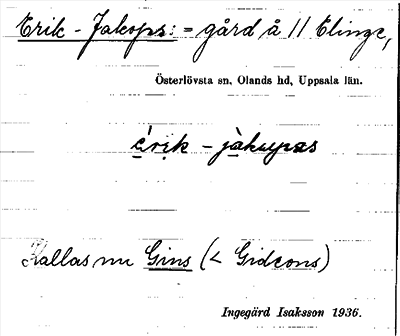 Erik-Jakops: = gård å 11 Elinge,
Österlövsta sn, Olands hd, Uppsala län.
érik - jàkupas
Kallas nu Gins (< Gideons)
Ingegärd Isaksson 1936.